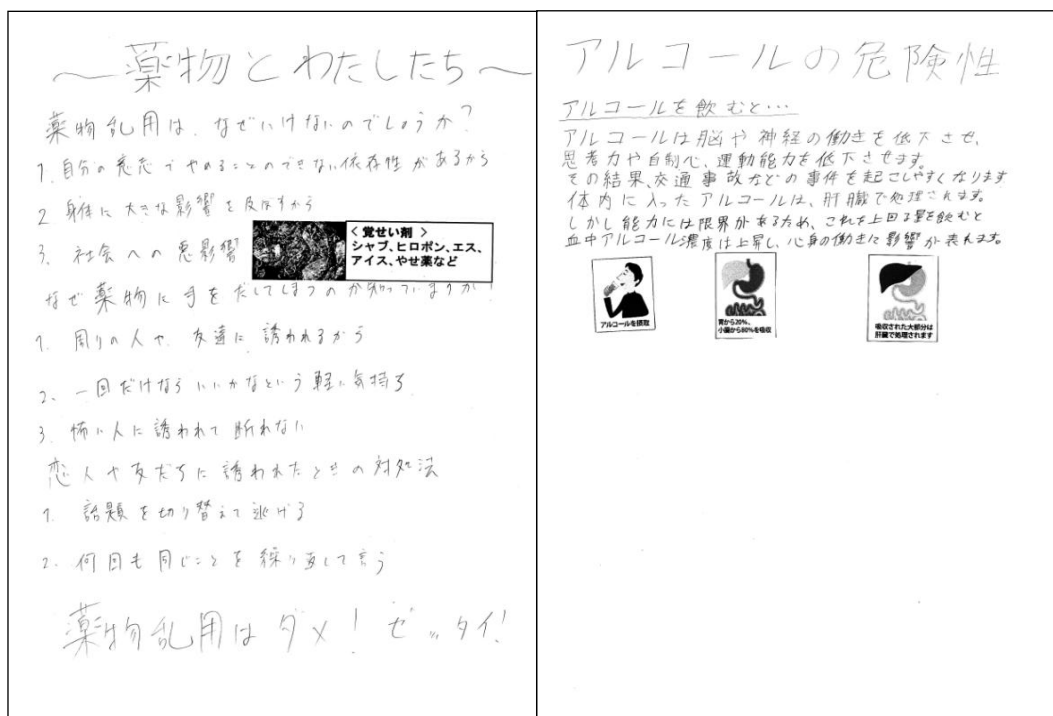 ～薬物とわたしたち～
薬物乱用は、なぜいけないのでしょうか？
1. 自分の意志でやめることのできない依存性があるから
2 身体に大きな影響を及ぼすから
3. 社会への悪影響
＜覚せい剤＞
シャブ、ヒロポン、エス、
アイス、やせ薬など
なぜ薬物に手をだしてしまうのか知っていますか！
1. 周りの人や、友達に誘われるから
2. 一回だけならいいかなという軽い気持ち
3. 怖い人に誘われて断れない
恋人や友だちに誘われたときの対処法
1. 話題を切り替えて逃げる
2. 何回も同じことを繰り返して言う
薬物乱用はダメ！ゼッタイ！
アルコールの危険性
アルコールを飲むと…
アルコールは脳や神経の働きを低下させ、
思考力や自制心、運動能力を低下させます。
その結果、交通事故などの事件を起こしやすくなります
体内に入ったアルコールは、肝臓で処理されます。
しかし能力には限界があるため、これを上回る量を飲むと
血中アルコール濃度は上昇し、心身の働きに影響が表れます。
アルコールを摂取
胃から20%、
小腸から80%を吸収
吸収された大部分は
肝臓で処理されます